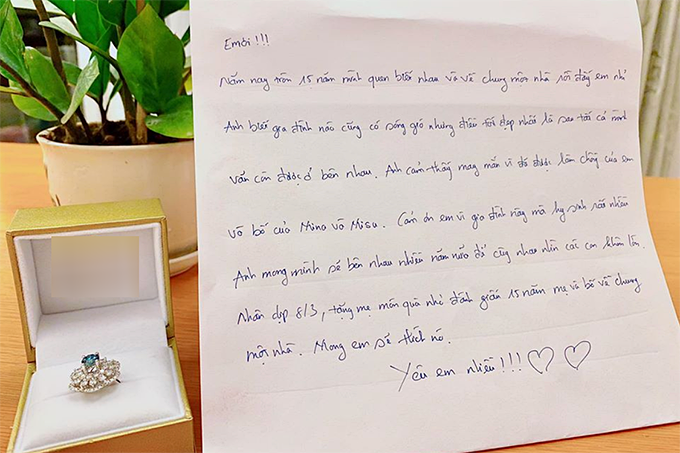 Em ơi !!!
Năm nay tròn 15 năm mình quen biết nhau và về chung một nhà rồi đấy em nhỉ
Anh biết gia đình nào cũng có sóng gió nhưng điều tốt đẹp nhất là sau tất cả mình
vẫn còn được ở bên nhau. Anh cảm thấy may mắn vì đã được làm chồng của em
và bố của Mina và Misu. Cám ơn em vì gia đình này mà hy sinh rất nhiều
Anh mong mình sẽ bên nhau nhiều năm nữa để cùng nhau nhìn các con khôn lớn.
Nhân dịp 8/3, tặng mẹ món quà nhỏ đánh giấu 15 năm mẹ và bố về chung
một nhà. Mong em sẽ thích nó.
Yêu em nhiều!!! ♡ ♡